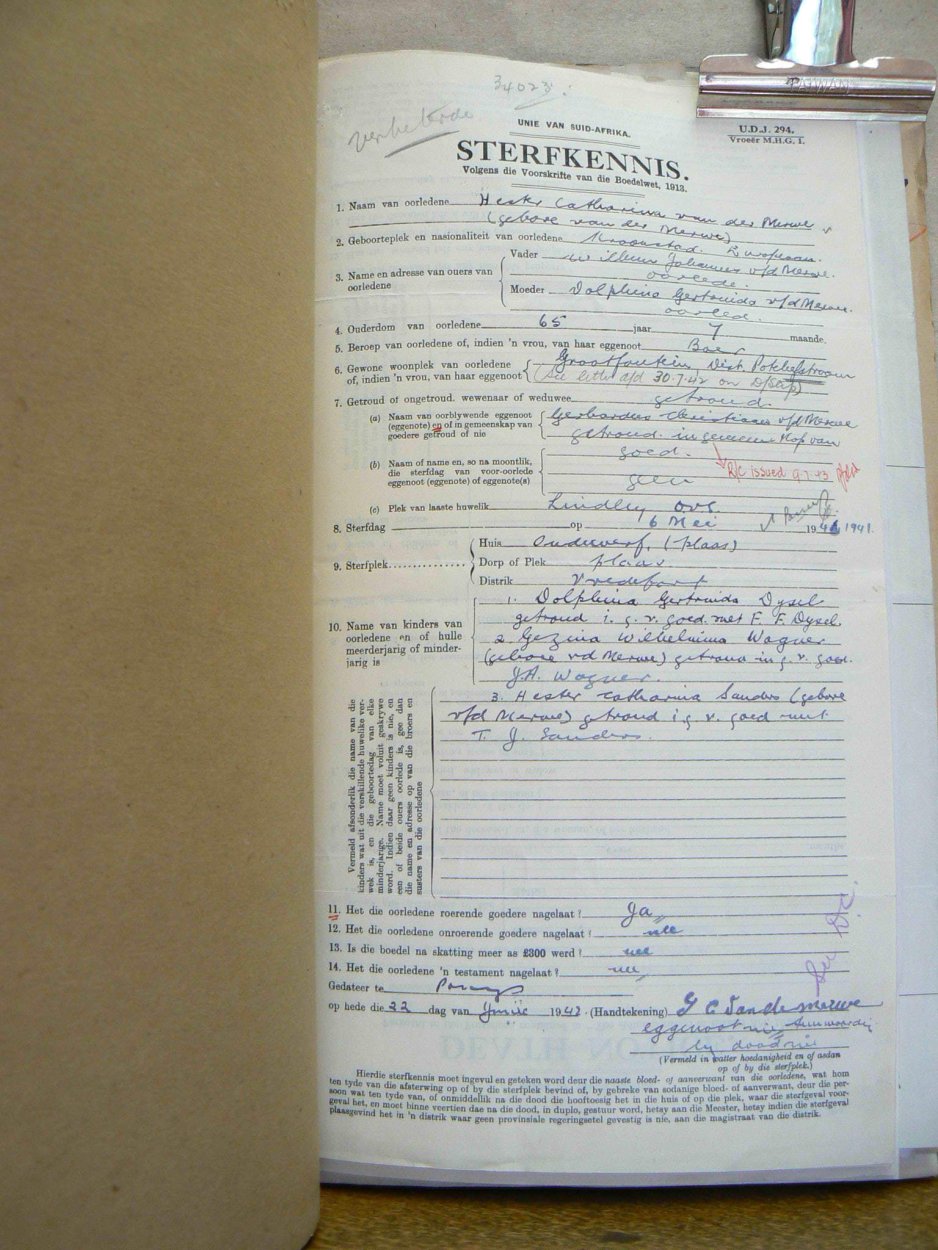 34023
TAIWAN
UNIE VAN SUID-AFRIKA.
U.D.J. 294.
Vroeër M.H.G. 1.
STERFKENNIS.
Volgens die Voorskrifte van die Boedelwet, 1913.
1. Naam van oorledene Hester Catharina van der Merwe
(gebore van der Merwe)
2. Geboorteplek en nasionaliteit van oorledene Kroonstad. Europeaan.
3. Name en adresse van ouers van oorledene
Vader Willem Johannes v/d Merwe.
oorlede.
Moeder Dolphina Gertruida v/d Merwe.
oorled.
4. Ouderdom van oorledene 65 jaar 7 maande.
5. Beroep van oorledene of, indien 'n vrou, van haar eggenoot Boer
6. Gewone woonplek van oorledene of, indien 'n vrou, van haar eggenoot
Grootfontein, Dist. Potchefstroom
30.7.42 on
7. Getroud of ongetroud, wewenaar of weduwee getroud.
(a) Naam van oorblywende eggenoot (eggenote) en of in gemeenskap van goedere getroud of nie
Gerhardus Christiaan v/d Merwe
getroud. in gemeenskap van
goed.
R/C issued 9.1.43
(b) Naam of name en, so na moontlik, die sterfdag van voor-oorlede eggenoot (eggenote) of eggenote(s)
geen
(c) Plek van laaste huwelik Lindley OVS.
8. Sterfdag op 6 Mei 1941.
9. Sterfplek
Huis Ouderwerf, (plaas)
Dorp of Plek plaas
Distrik Vredefort
10. Name van kinders van oorledene en of hulle meerderjarig of minderjarig is
1. Dolphina Gertruida Dysel
getroud i. g. v. goed. met F. F. Dysel.
2 Gezina Wilhelmina Wagner
(gebore v/d Merwe) getroud in g. v. goed.
J.A. Wagner.
3. Hester Catharina Sanders (gebore
v/d Merwe) getroud i g v. goed met
T. J. Sanders.
Vermeld afsonderlik die name van die
kinders wat uit die verskillende huwelike ver-
wek is, en die geboortedag van elke
minderjarige. Name moet voluit geskrywe
word. Indien daar geen kinders is nie, en
een of beide ouers oorlede is, gee dan
die name en adresse op van die broers en
susters van die oorledene
11. Het die oorledene roerende goedere nagelaat? Ja
12. Het die oorledene onroerende goedere nagelaat? nee
13. Is die boedel na skatting meer as £300 werd? nee
14. Het die oorledene 'n testament nagelaat? nee
Gedateer te Parys
op hede die 22 dag van Junie 1942. (Handtekening) G C Van der Merwe
eggenoot nie teenwoordig
by dood nie
(Vermeld in watter hoedanigheid en of aldan
op of by die sterfplek.)
Hierdie sterfkennis moet ingevul en geteken word deur die naaste bloed- of aanverwant van die oorledene, wat hom
ten tyde van die afsterwing op of by die sterfplek bevind of, by gebreke van sodanige bloed- of aanverwant, deur die per-
soon wat ten tyde van, of onmiddellik na die dood die hooftoesig het in die huis of op die plek, waar die sterfgeval voor-
geval het, en moet binne veertien dae na die dood, in duplo, gestuur word, hetsy aan die Meester, hetsy indien die sterfgeval
plaasgevind het in 'n distrik waar geen provinsiale regeringsetel gevestig is nie, aan die magistraat van die distrik.